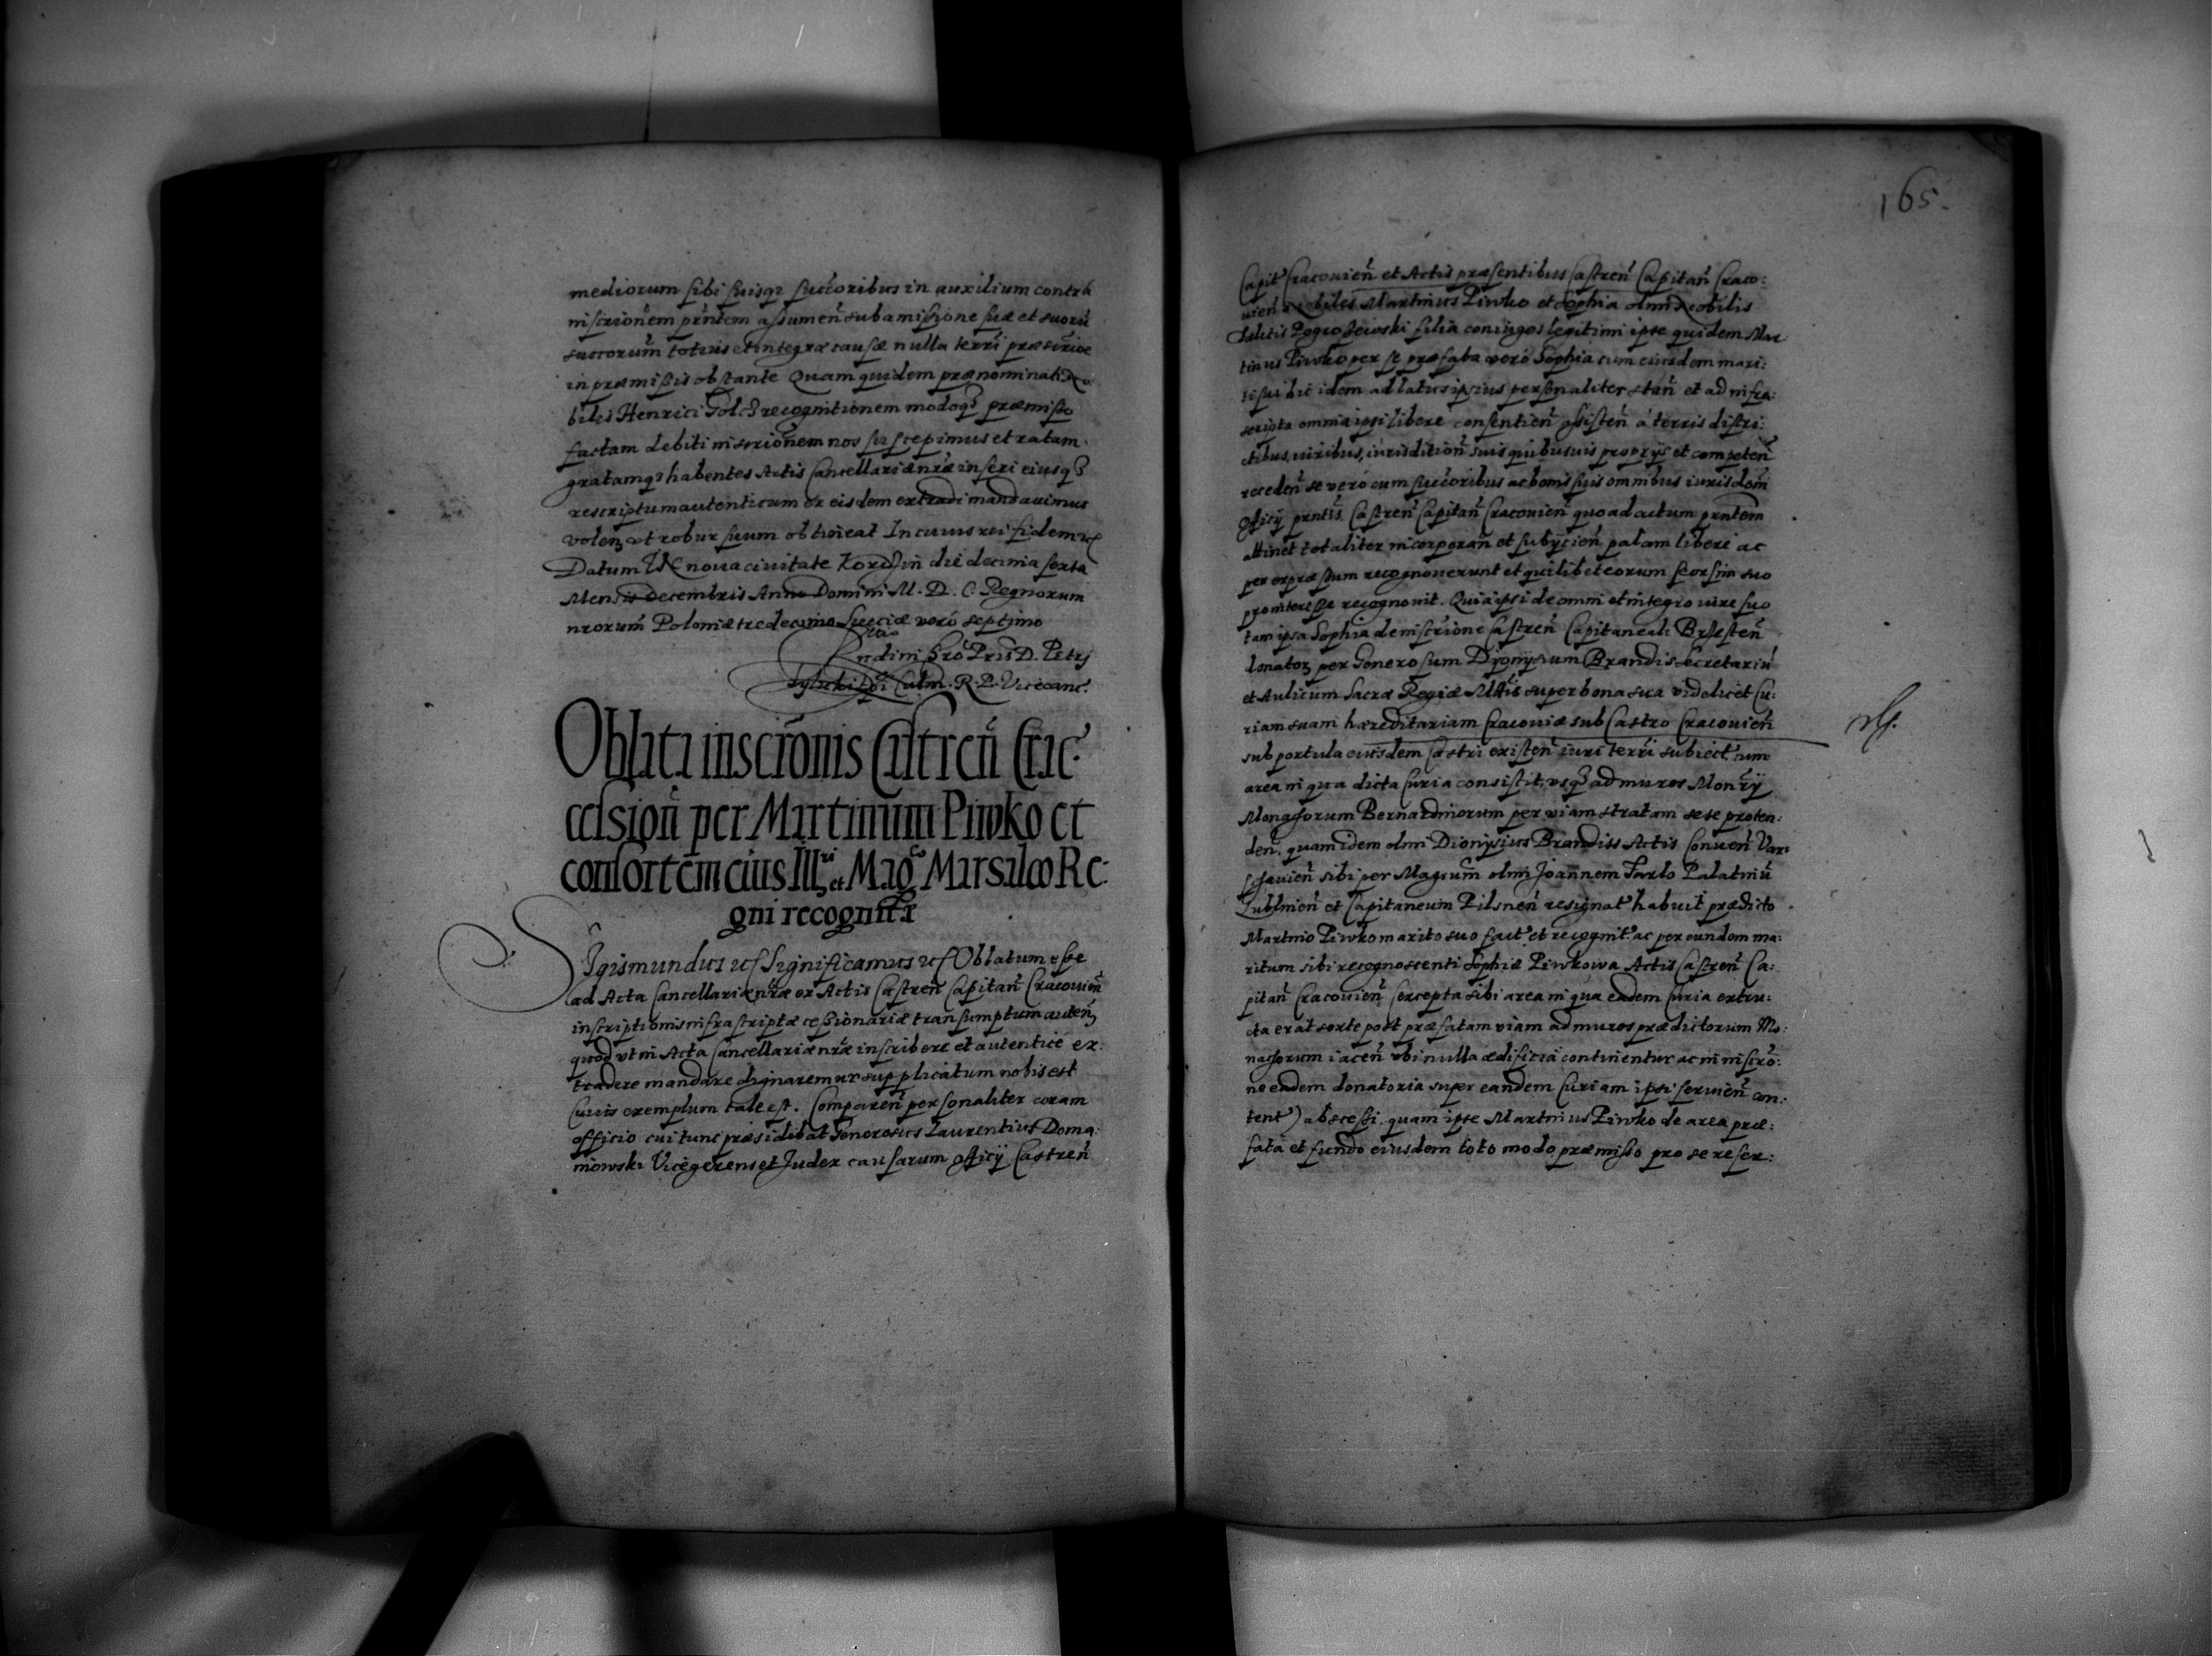 mediorum sibi suisqz succoribus in auxilium contra
inscrionem prntem assumen sub amissione suæ et suorũ
succorum totius et integræ causæ nulla terri præscrioe
in præmissis obstante Quam quidem prænominati No:
bilis Henrici recognitionem modoqz præmisso
factam debiti inscrionem nos suscepimus et ratam
gratamqz habentes Actis Cancellariæ nræ inseri eiusqz
rescriptum autenticum ex eisdem extradi mandauimus
volen vt robur suum obtineat In cuius rei fidem
Datum in noua ciuitate die decima sexta
Mensis Decembris Anno Domini M. D. C. Regnorum
nrorum Poloniæ tredecimo Sueciæ vero septimo
Rndimi Pris D. Petrj
Tylicki Culm. R. P. Vicecanc.
Oblata inscrionis Castren Crac:
cession per Martinum Piwko et
consortem eius Illri et Magco Marsalco Re:
gni recognitæ
Sigismundus Significamus Oblatum esse
ad Acta Cancellariæ nræ ex Actis Castren Capitan Cracouien
inscriptionis infrascriptæ cessionariæ transumptum auten
quod vt in Acta Cancellariæ nræ inscribere et autenticè ex:
tradere mandare dignaremur supplicatum nobis est
Cuius exemplum tale est. Comparen personaliter coram
officio cui tunc præsidebat Generosus Laurentius Doma:
niowski Vicegerens et Judex causarum officij Castren
165.
Capit Cracouien et Actis præsentibus Castren Capitan Craco:
uien Nobiles Martinus Piwko et Sophia olim Nobilis
filia coniuges legitimi ipse quidem Mar:
tinus Piwko per se præfata vero Sophia cum eiusdem mari:
ti sui hic idem ad latus ipsius personaliter stan et ad infra:
scripta omnia ipsi libere consentien assisten à terris distri:
ctibus, iurisdition suis quibusuis proprijs et competen
receden se vero cum succoribus ac bonis suis omnibus iurisdoni
officij prntis Castren Capitan Cracouien quo ad actum prntem
attinet totaliter incorporan et subijcien palam libere ac
per expressum recognouerunt et quilibet eorum seorsim suo
pro interesse recognouit. Quia ipsi de omni et integro iure suo
tam ipsa Sophia de inscrione Castren Capitaneali Brzesten
donator per Generosum Dyonysium Brandis Secretariũ
et Aulicum Sacræ Regiæ Mttis super bona sua videlicet Cu:
riam suam hæreditariam Cracouiæ sub Castro Cracouien
sub portula eiusdem Castri existen iuri terri subiect cum
area in qua dicta Curia consistit, vsqz ad muros Monrij
Monachorum Bernardinorum per viam stratam sese proten:
den. quam idem olim Dionysius Brandiss Actis Conuen Var:
schauien sibi per Magcum olim Joannem Tarlo Palatinũ
Lublinen et Capitaneum Pilsnen resignat habuit prædicto
Martino Piwko marito suo fact et recognit ac per eundem ma:
ritum sibi recognoscenti Sophiæ Piwkowa Actis Castren Ca:
pitan Cracouien (excepta sibi area in qua eadem Curia extru:
cta erat sorte post præfatam viam ad muros prædictorum Mo:
nachorum iacen vbi nulla ædificia continentur ac in inscrio:
ne eadem donatoria super eandem Curiam ipsi seruien con:
tent) abscessi, quam ipse Martinus Piwko de area præ:
fata et fundo eiusdem toto modo præmisso pro se reser: